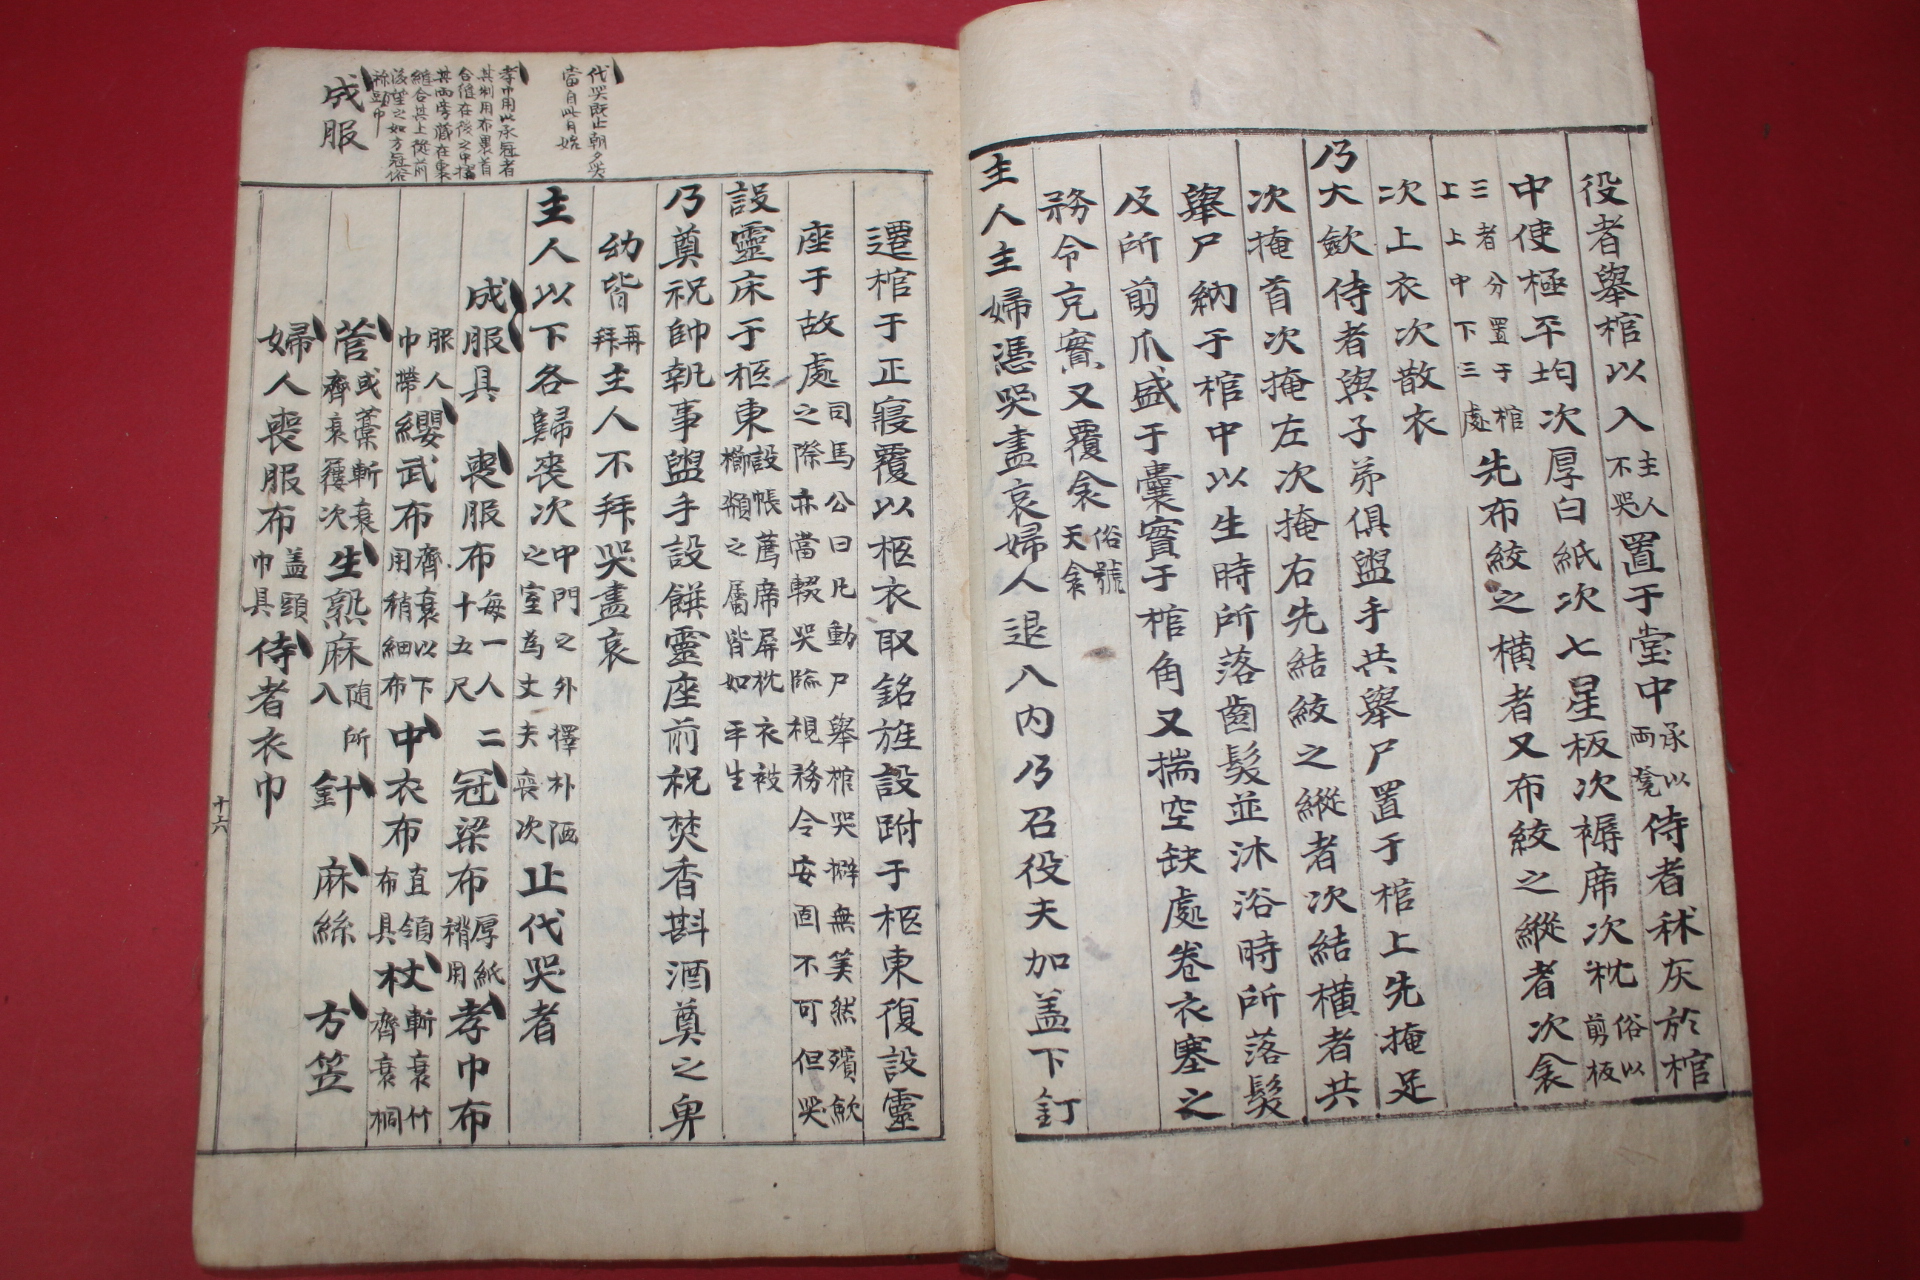 役者擧棺以入主人不哭置于堂中承以兩凳侍者秫灰於棺
中使極平均次厚白紙次七星板次褥席次枕俗以剪板
三者分置于棺上上中下三處先布絞之橫者又布絞之縱者次衾
次上衣次散衣
乃大歛侍者與子弟俱盥手共擧尸置于棺上先掩足
次掩首次掩左次掩右先結絞之縱者次結橫者共
擧尸納于棺中以生時所落齒髮並沐浴時所落髮
及所剪爪盛于囊實于棺角又揣空缺處卷衣塞之
務令充實又覆衾俗號天衾
主人主婦憑哭盡哀婦人退入內乃召役夫加盖下釘
遷棺于正寢覆以柩衣取銘旌設跗于柩東復設靈
座于故處司馬公曰凡動尸擧棺哭擗無筭然殯歛之際亦當輟哭臨視務令安固不可但哭
設靈床于柩東設帳薦席屛枕衣被櫛頮之屬皆如平生
乃奠祝帥執事盥手設饌靈座前祝焚香斟酒奠之卑
幼皆再拜主人不拜哭盡哀
主人以下各歸喪次中門之外擇朴陋之室為丈夫喪次止代哭者
成服具 喪服布每一人十五尺 二冠梁布厚紙稍用孝巾布
服人巾帶纓武布齊衰以下用稍細布中衣布直領布具杖斬衰竹齊衰桐
菅或藁斬衰齊衰屨次生熟麻随所入針 麻絲 方笠
婦人喪服布盖頭巾具侍者衣巾
代哭旣止朝夕哭
當自此日始
孝巾用以承冠者
其制用布裹首
合縫在後之中擂
其兩旁藏在裏
縫合其上從前
後望之如方冠俗
称頭巾
成服
十六